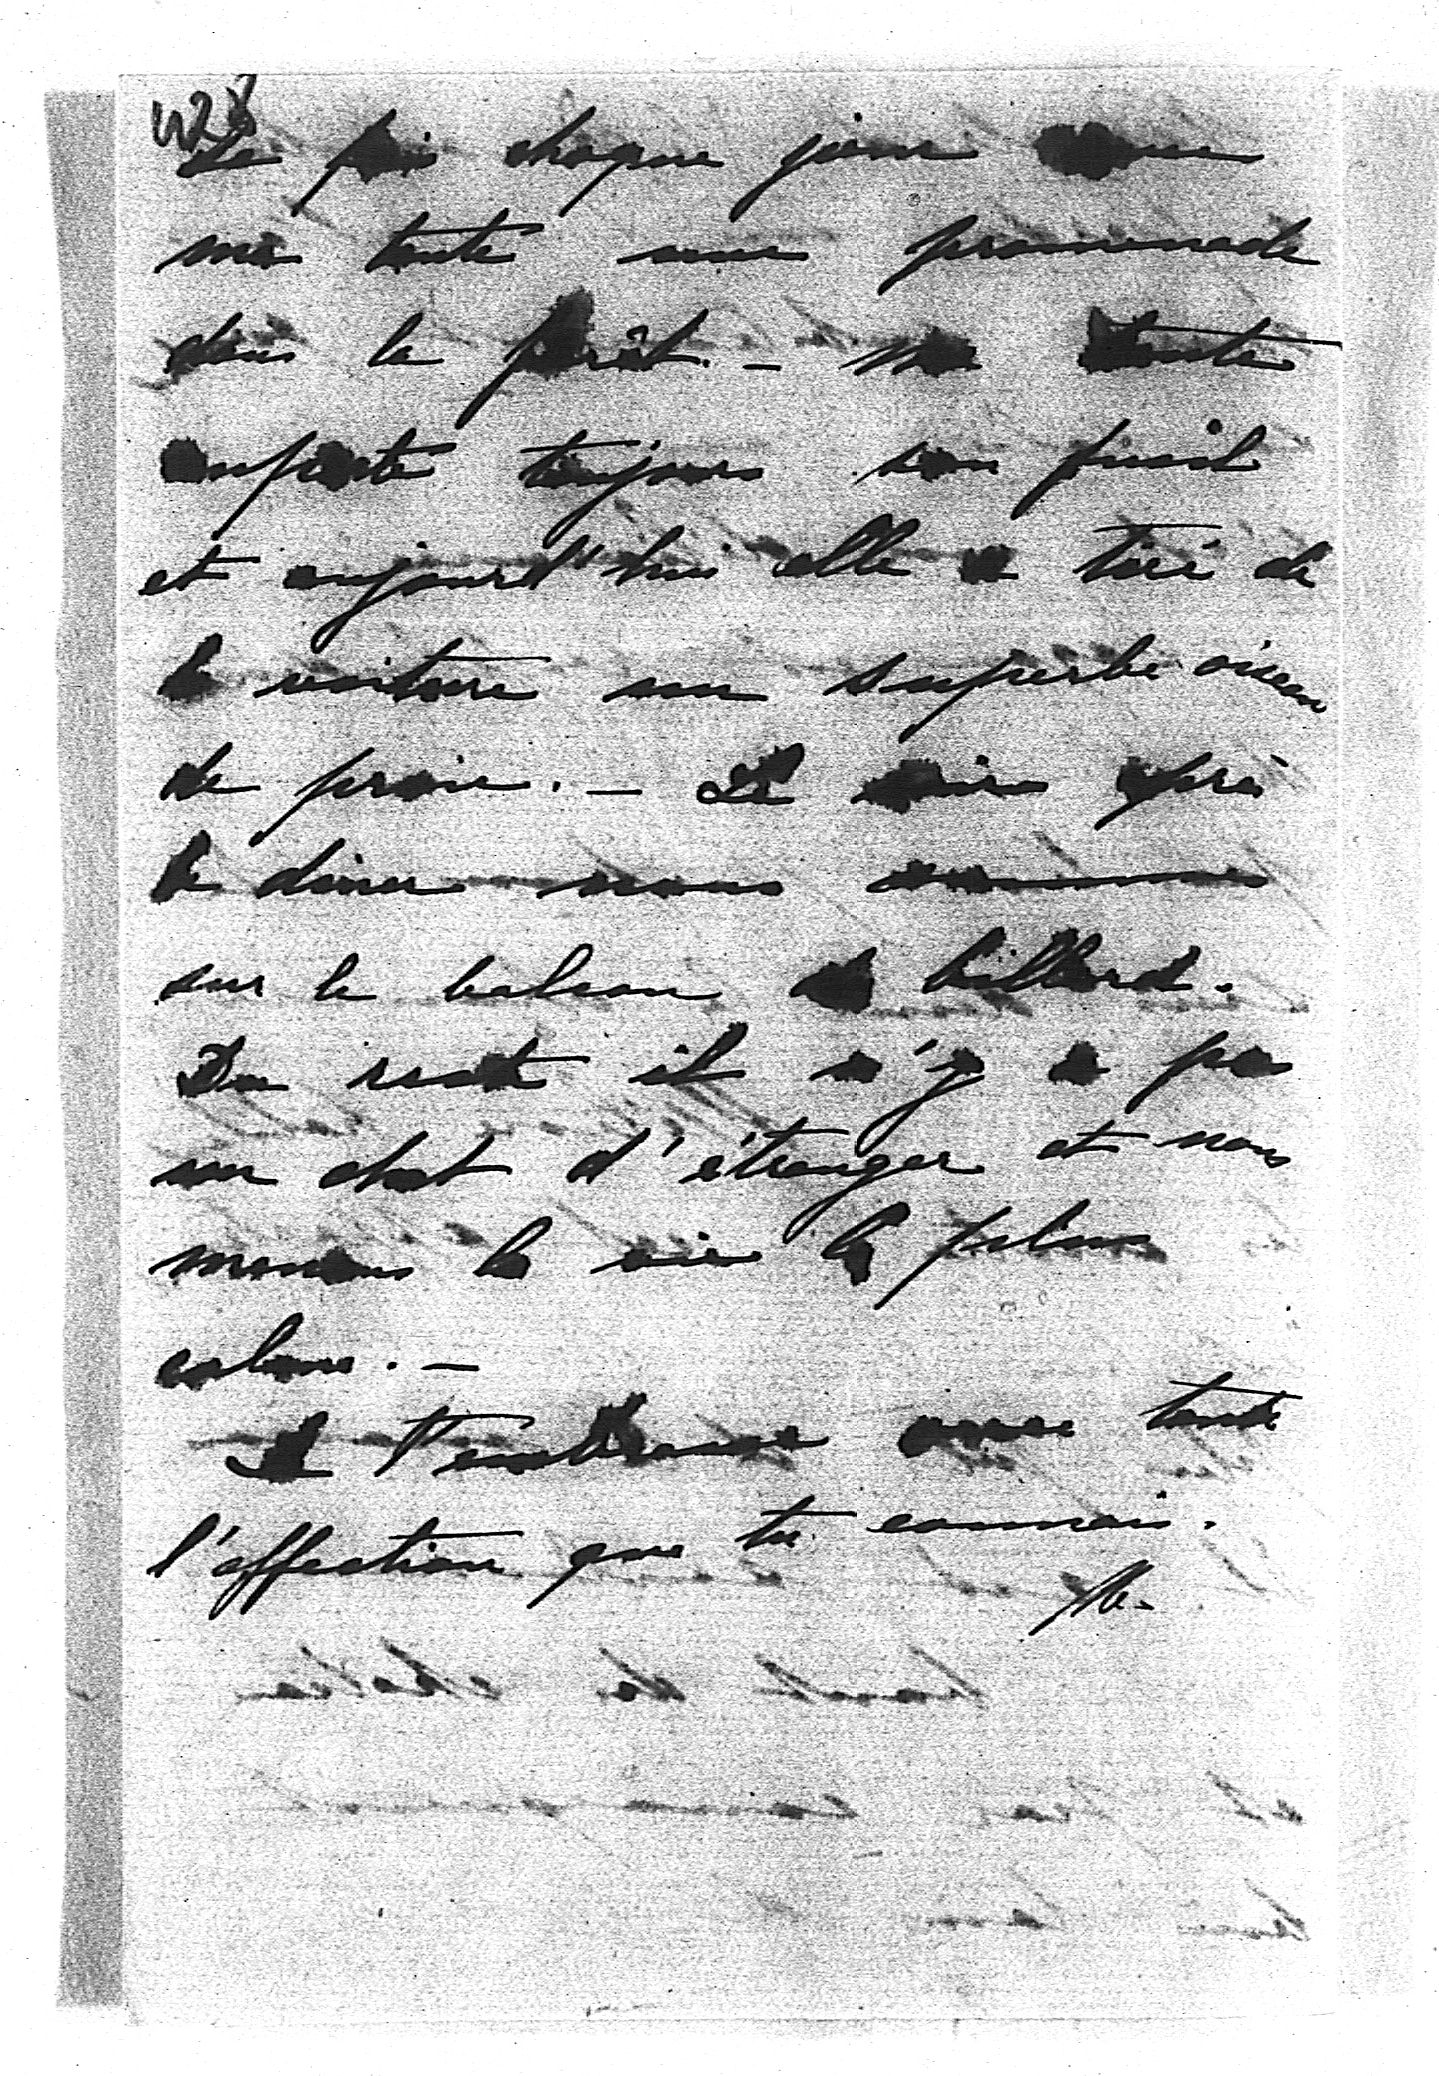 428
Je fais chaque jour avec
ma tante une promenade
dans la forêt. — Ma tante
emporte toujours son fusil
et aujourd'hui elle a tiré de
la voiture un superbe oiseau
de proie. — Le soir après
le diner nous sommes
sur le balcon du billard.
Du reste il n'y a pas
un chat d'étranger et nous
menons la vie la plus
calme. —
Je t'embrasse avec toute
l'affection que tu connais.
M.